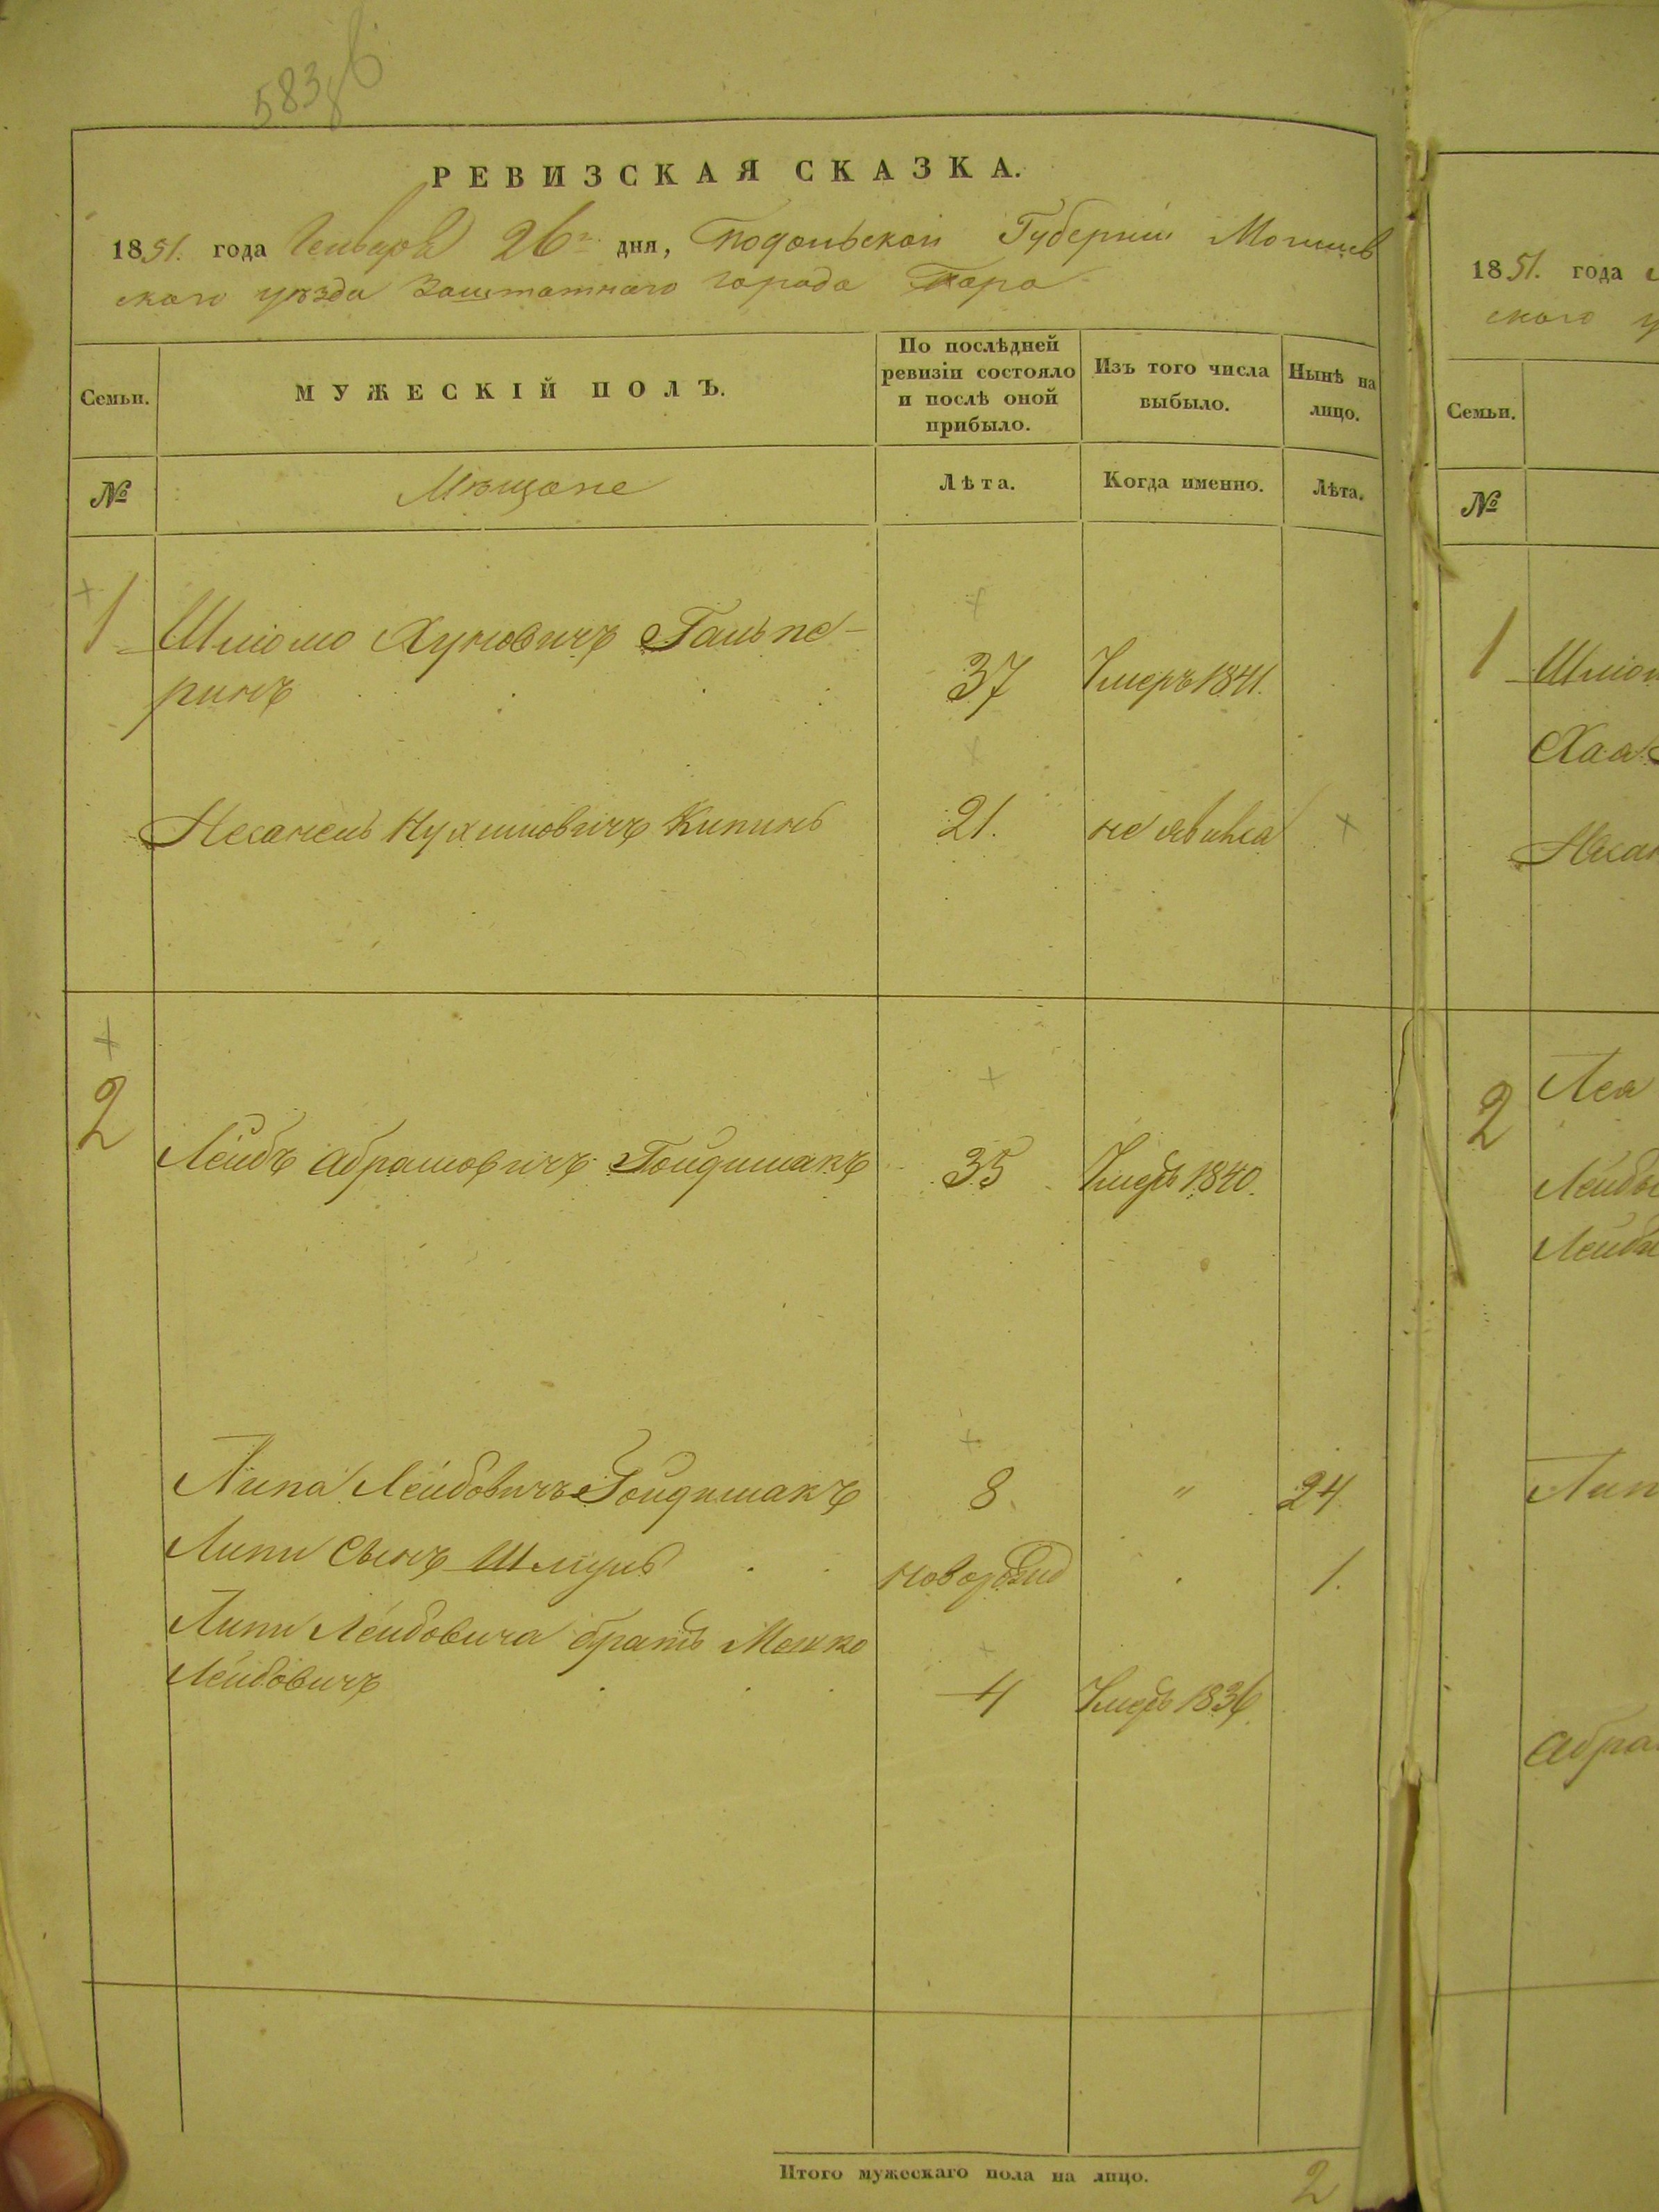 583
РЕВИЗСКАЯ СКАЗКА.
1851. года Генваря 26г. дня, Подольской Губерніи Могилев
скаго уѣзда Заштатнаго города Бара
Семьи.
МУЖЕСКІЙ ПОЛЪ.
По послѣдней ревизіи состояло и послѣ оной прибыло.
Изъ того числа выбыло.
Нынѣ на лицо.
№
Мѣщане
Лѣта.
Когда именно.
Лѣта.
1 Шліомо Хуновичъ Гальпе-
ринъ 37 Умеръ 1841.
Нухимовичъ 21. не явился
2
Лейбъ Абрамовичъ 35 Умеръ 1840.
Липа Лейбовичъ 8. " 24
Липи Сынъ Шмуль новорожд 1.
Липи Лейбовича братъ
Лейбовичъ 4 Умеръ 1836.
Итого мужескаго пола на лицо. 2
1851. года
ского у
Семьи.
№
1 Шліом
Хаа
2 Леа
Лейбы
Лейбы
Лип
Абра